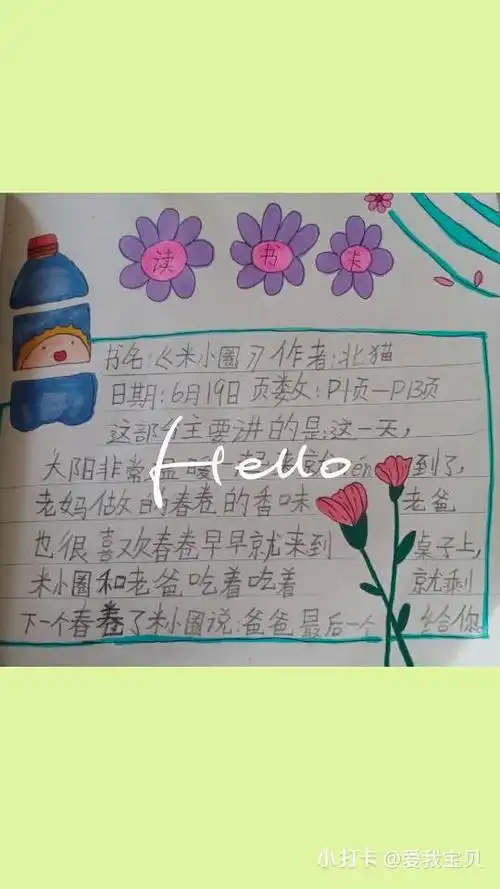 读书卡
书名:《米小圈》作者:北猫
日期:6月19日 页数:P1页—P13页
这部分主要讲的是:这一天,
太阳非常温暖 én 到了,
老妈做的春卷的香味 老爸
也很喜欢春卷早早就来到 桌子上,
米小圈和老爸吃着吃着 就剩
下一个春卷了米小圈说:爸爸最后一个 给你。
Hello
小打卡 @爱我宝贝